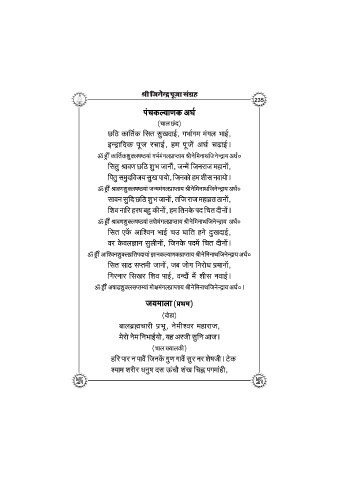 श्री जिनेन्द्र पूजा संग्रह
235
पंचकल्याणक अर्घ
(चाल छंद)
छठि कार्तिक सित सुखदाई, गर्भागम मंगल भाई,
इन्द्रादिक पूज रचाई, हम पूजें अर्घ चढ़ाई।
ॐ ह्रीं कार्तिकशुक्लषष्ठयां गर्भमंगलप्राप्ताय श्रीनेमिनाथजिनेन्द्राय अर्घ०
सितु श्रावण छठि शुभ जानौं, जन्मे जिनराज महानौं,
पितु समुदविजय सुख पायो, जिनको हम शीस नवायो।
ॐ ह्रीं श्रावणशुक्लषष्ठयां जन्ममंगलप्राप्ताय श्रीनेमिनाथजिनेन्द्राय अर्घ०
सावन सुदि छठि शुभ जानौं, तजि राज महाव्रत ठानौं,
शिव नारि हरष बहु कीनौं, हम तिनके पद चित दीनौं।
ॐ ह्रीं श्रावणशुक्लषष्ठयां तपोमंगलप्राप्ताय श्रीनेमिनाथजिनेन्द्राय अर्घ०
सित एकैं आश्विन भाई चउ घाति हने दुखदाई,
वर केवलज्ञान सुलीनों, जिनके पदमें चित दीनों।
ॐ ह्रीं आश्विनशुक्लप्रतिपदायां ज्ञानकल्याणकप्राप्ताय श्रीनेमिनाथजिनेन्द्राय अर्घ०
सित साढ सप्तमी जानौं, जब जोग निरोध प्रमानौं,
गिरनार सिखर शिव पाई, वन्दौं मैं शीस नवाई।
ॐ ह्रीं अषाढ़शुक्लसप्तम्यां मोक्षमंगलप्राप्ताय श्रीनेमिनाथजिनेन्द्राय अर्घ०।
जयमाला (प्रथम)
(दोहा)
बालब्रह्मचारी प्रभू, नेमीश्वर महाराज,
मेरो नेम निभाईयो, यह अरजी सुनि आज।
(चाल ख्यालकी)
हरि पार न पावैं जिनकें गुण गावैं सुर नर शेषजी। टेक
श्याम शरीर धनुष दस ऊंचौ शंख चिह्न पगमांही,